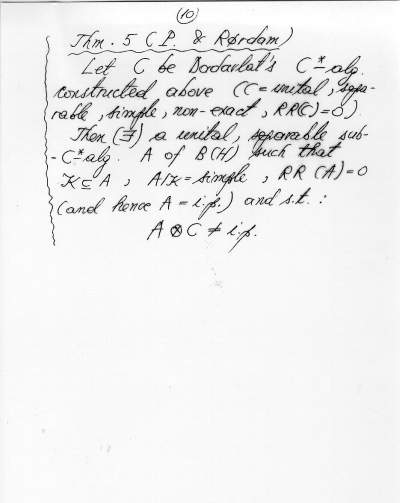 (10)
Thm. 5 (P. & Rørdam)
Let C be Dadarlat's C*-alg.
constructed above (C = unital, sepa-
rable, simple, non-exact, RR(C)=0)
Then (∃) a unital, separable sub-
-C*-alg. A of B(H) such that
K ⊆ A, A/K = simple, RR(A)=0
(and hence A = i.p.) and s.t. :
A ⊗ C ≠ i.p.